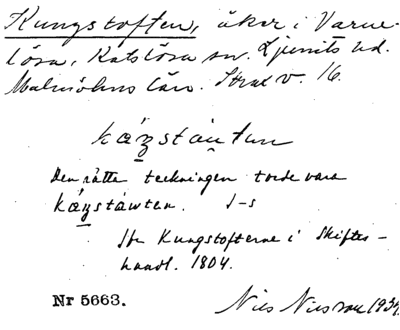 Kungstoften, åker i Varme-
lösa, Katslösa sn. Ljunits hd.
Malmöhus län. Strax v. 16.
káŋstáutun
Den rätta teckningen torde vara
káŋstáwten. J-s
Jfr Kungstofterne i Skiftes-
handl. 1804.
Nr 5663. Nils Nilsson 1934